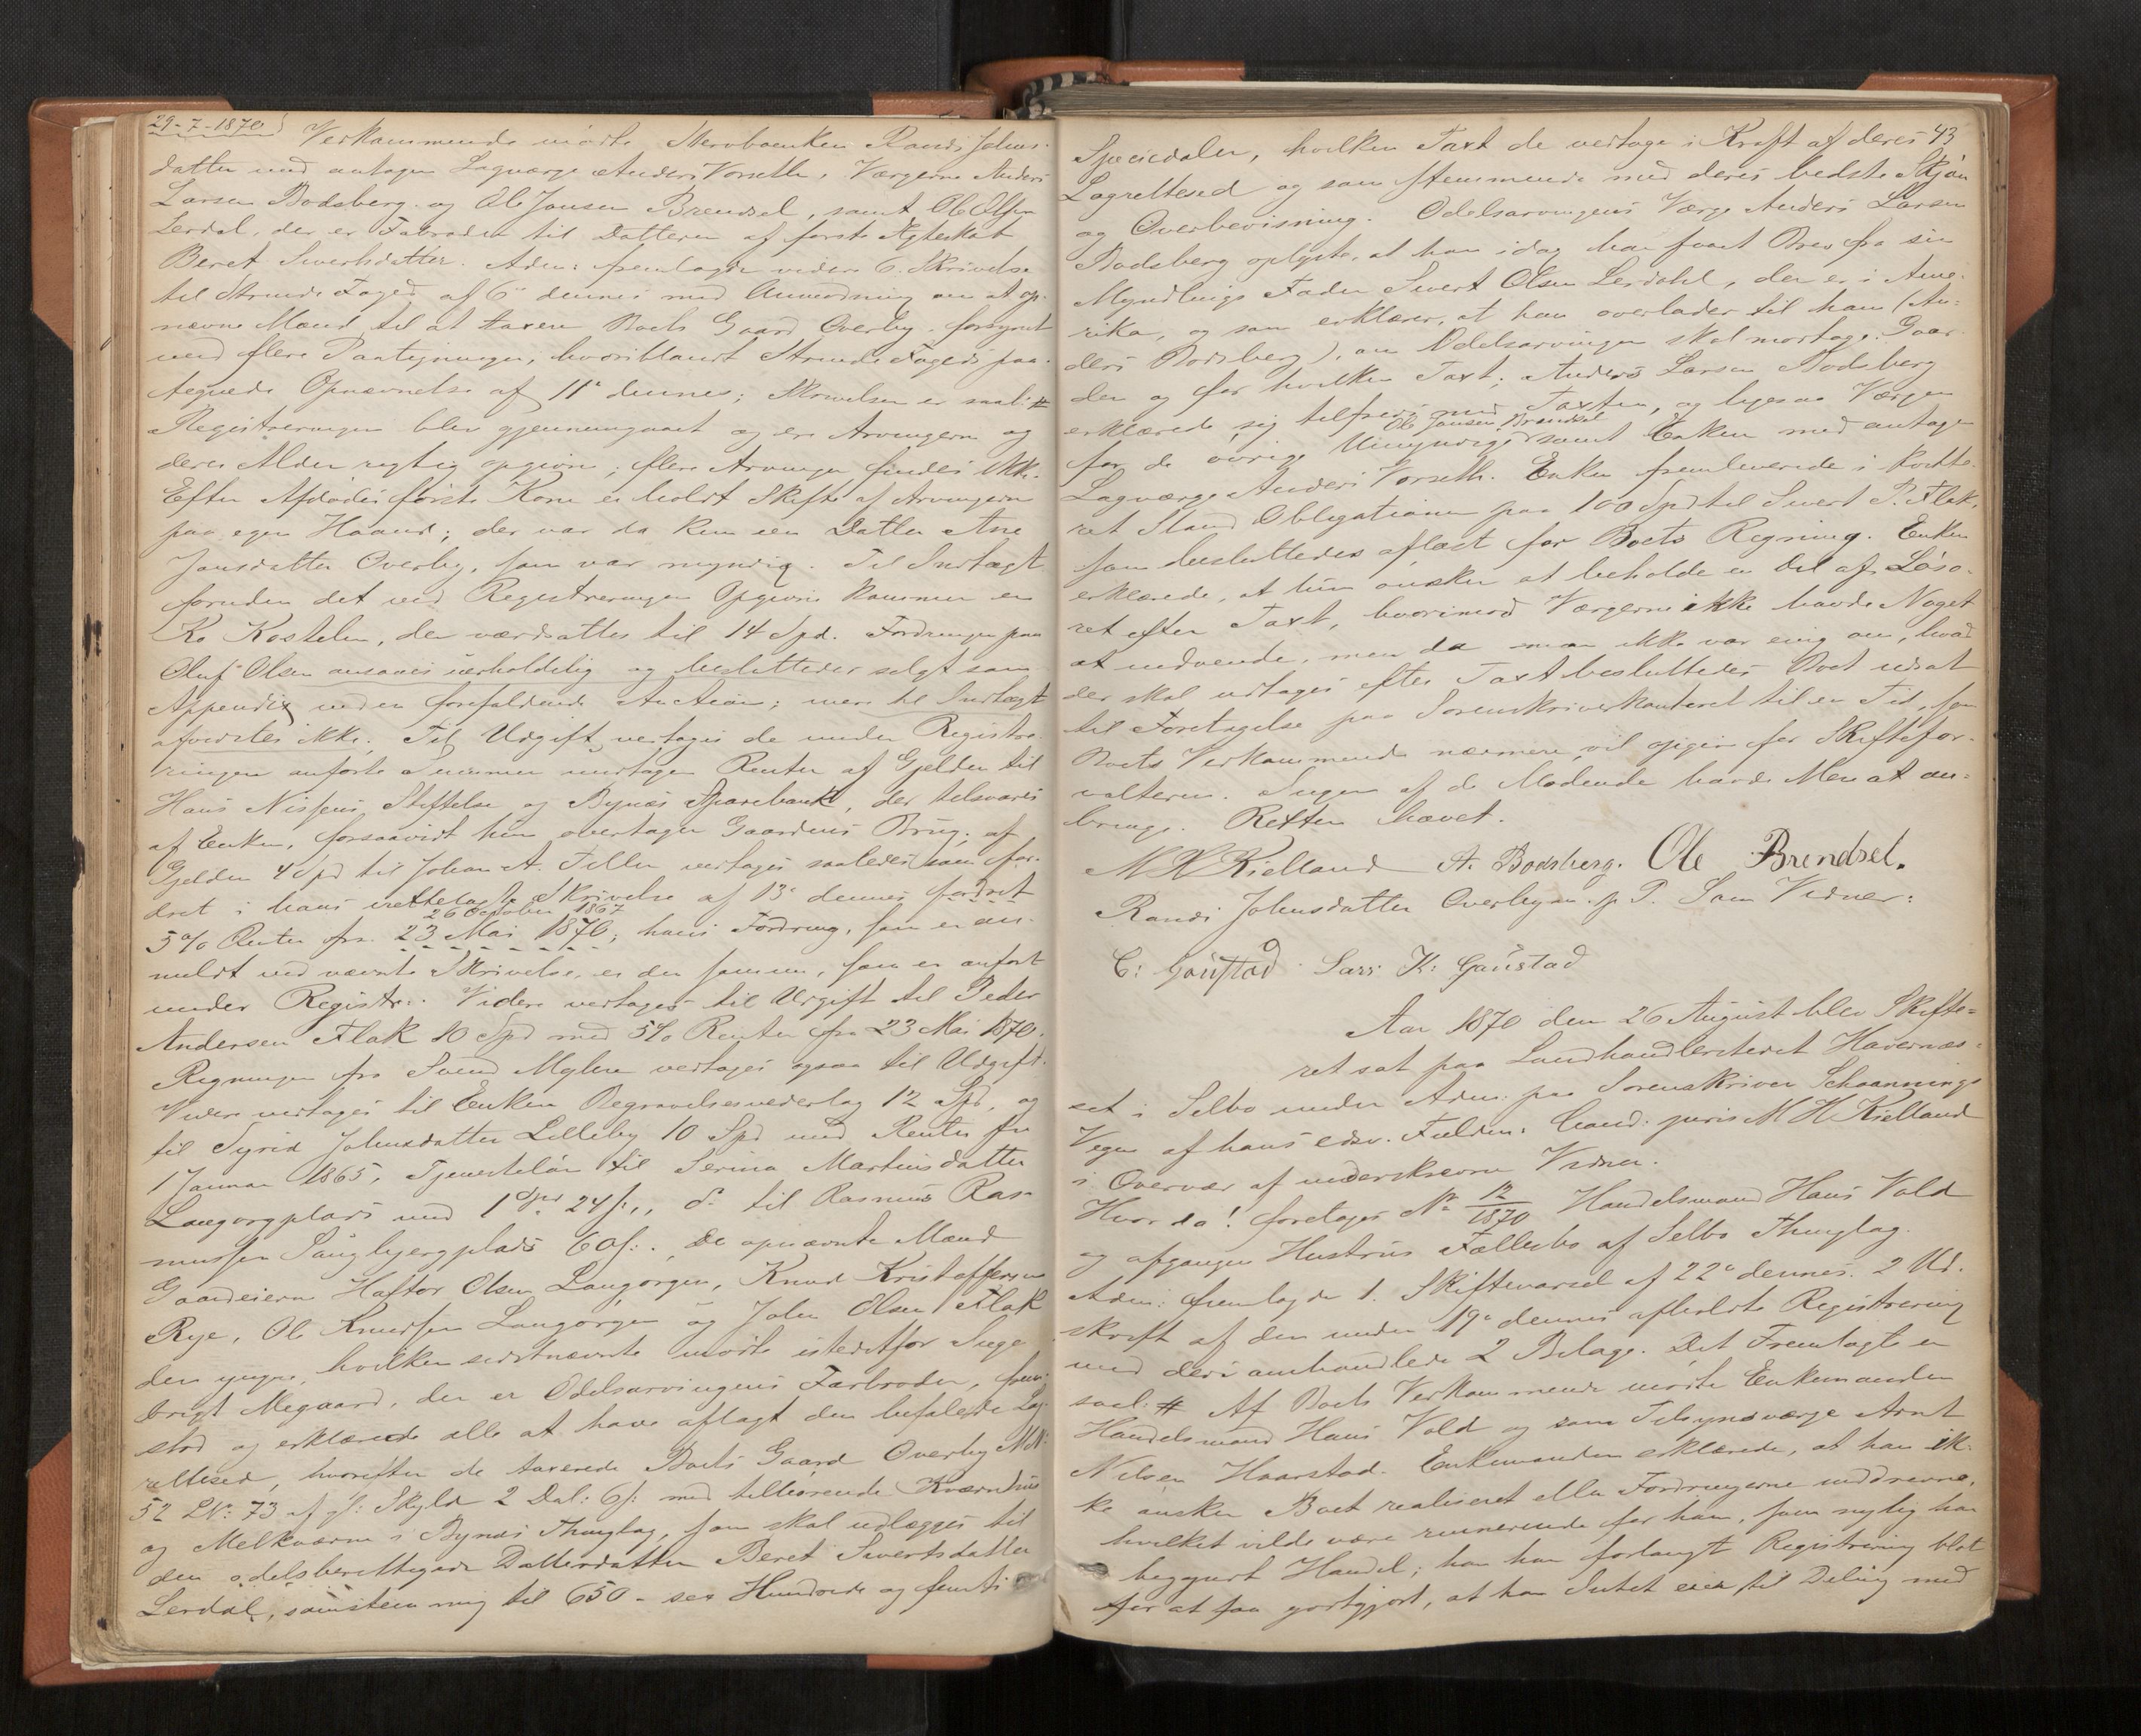 29-7-1870
Vedkommende mødte Stervboenken Randi Johns-
datter med antagen Laugværge Anders Vorseth, Værgerne Anders
Larsen Bodsberg og Ole Jansen Brendsel, samt Ole Olsen
Lerdal, der er Farbroder til Datteren af første Ægteskab
Beret Sivertsdatter. Adm: fremlagde videre 6. Skrivelse
til Strinde Foged af 6te dennes med Anmodning om at op-
nævne Mænd til at taxere Boets Gaard Overby, forsynet
med flere Paategninger, hvoriblandt Strinde Fogeds paa-
tegnede Opnævnelse af 11te dennes; Skrivelsen er saal: #
Registreringen blev gjennemgaaet og er Arvingerne og
deres Alder rigtig opgivne; flere Arvinger findes ikke.
Efter Afdødes første Kone er holdt Skifte af Arvingerne
paa egen Haand; der var da kun een Datter Ane
Jonsdatter Overby, som var myndig. Til Indtægt
foruden det ved Registreringen Opgivne kommer en
Ko Kostelin, der værdsattes til 14 Spd. Fordringen paa
Oluf Olsen ansaaes uerholdelig og besluttedes solgt som
Appendix ved en forefaldende Auction; mere til Indtægt
afvidstes ikke. Til Udgift vertages de under Registre-
ringen anførte Summer undtagen Renter af Gjelden til
Hans Nissens Stiftelse og Bynæs Sparebank, der tilsvares
af Enken, forsaavidt hun overtager Gaardens Brug; af
Gjelden 4 Spd til Johan A. Tiller vertages saaledes som for-
dret i hans retteslagte Skrivelse af 13de dennes fordret
26 October 1867
5% Renter fra 23 Mai 1870; hans Fordring, som er an-
meldt ved nævnte Skrivelse, er den samme, som er anført
under Registr:. Videre vertages til Udgift til Peder
Andersen Flak 10 Spd med 5% Renter fra 23 Mai 1870.
Regningen fra Svend Myhre vertages ogsaa til Udgift.
Videre vertages til Enken Begravelsesvederlag 12 Spd, og
til Syrid Johnsdatter Lilleby 10 Spd med Renter fra
1 Januar 1865, Tjenesteløn til Serina Martinsdatter
Langorgplads med 1 Spd 24 s., do til Rasmus Ras-
mussen Saugbjergplads 60 s. De opnævnte Mænd
Gaardeierne Haftor Olsen Langørgen, Knud Kristoffersen
Rye, Ole Knudsen Langørgen og John Olsen Flak
den yngre, hvilken sidstnævnte mødte istedetfor Inge-
brigt Megaard, der er Odelsarvingens Farbroder, frem-
stod og erklærede alle at have aflagt den befalede Lag-
rettesed, hvorefter de taxerede Boets Gaard Overby MN:
52 LN: 73 af gl: Skyld 2 Dal: 6 s: med tilhørende Kværnhus
og Melkværn i Bynæs Thinglag, som skal udlægges til
den odelsberettigede Datterdatter Beret Sivertsdatter
Lerdal, samstemmig til 650 - sex Hundrede og femti
43
Speciedaler, hvilken Taxt de vedtoge i Kraft af deres
Lagrettesed og som stemmende med deres bedste Skjøn
og Overbevisning. Odelsarvingens Værge Anders Larsen
Bodsberg oplyste, at han idag har faaet Brev fra sin
Myndlings Fader Sivert Olsen Lerdahl, der er i Ame-
rika, og som erklærer, at han overlader til ham (An-
ders Bodsberg), om Odelsarvingen skal modtage Gaar-
den og for hvilken Taxt; Anders Larsen Bodsberg
erklærede sig tilfreds med Taxten, og ligesaa Værgen
Ole Jansen Brendsel
for de øvrige Umyndige samt Enken med antagen
Lagværge Anders Vorseth. Enken fremleverede i kvitte-
ret Stand Obligationen paa 100 Spd til Sivert P. Flak,
som besluttedes aflæst for Boets Regning. Enken
erklærede, at hun ønsker at beholde en Del af Løsø-
ret efter Taxt, hvorimod Værgerne ikke havde Noget
at indvende, men da man ikke var enig om, hvad
der skal udtages efter Taxt besluttedes Boet udsat
til Foretagelse paa Sorenskriverkontoret til en Tid, som
Boets Vedkommende nærmere vil opgive for Skiftefor-
valteren. Ingen af de Mødende havde Mere at an-
bringe. Retten hævet.
M H Kielland A. Bodsberg. Ole Brendsel.
Randi Johnsdatter Overby m. p. P. Som Vidner:
C: Gaustad Lars K: Gaustad
Aar 1870 den 26 August blev Skifte-
ret sat paa Landhandlerstedet Havernæs-
set i Selbo under Adm: paa Sorenskriver Schaannings
Vegne af hans edsv. Fuldm: Cand. juris M H Kielland
i Overvær af underskrevne Vidner.
Hvor da! foretages No 12/1870 Handelsmand Hans Vold
og afgangne Hustrus Fællesbo af Selbo Thinglag.
Adm: fremlagde 1. Skiftevarsel af 22de dennes. 2 Ud-
skrift af den under 19de dennes afholdte Registrering
med deri omhandlede 2 Bilage. Det Fremlagte er
saal: # Af Boets Vedkommende mødte Enkemanden
Handelsmand Hans Vold og som Tilsynsværge Arnt
Nilsen Haarstad. Enkemanden erklærede, at han ik-
ke ønsker Boet realiseret eller Fordringerne inddrevne,
hvilket vilde være ruinerende for ham, som nylig har
begyndt Handel; han har forlangt Registrering blot
for at faa godtgjort, at han Intet eier til Deling med